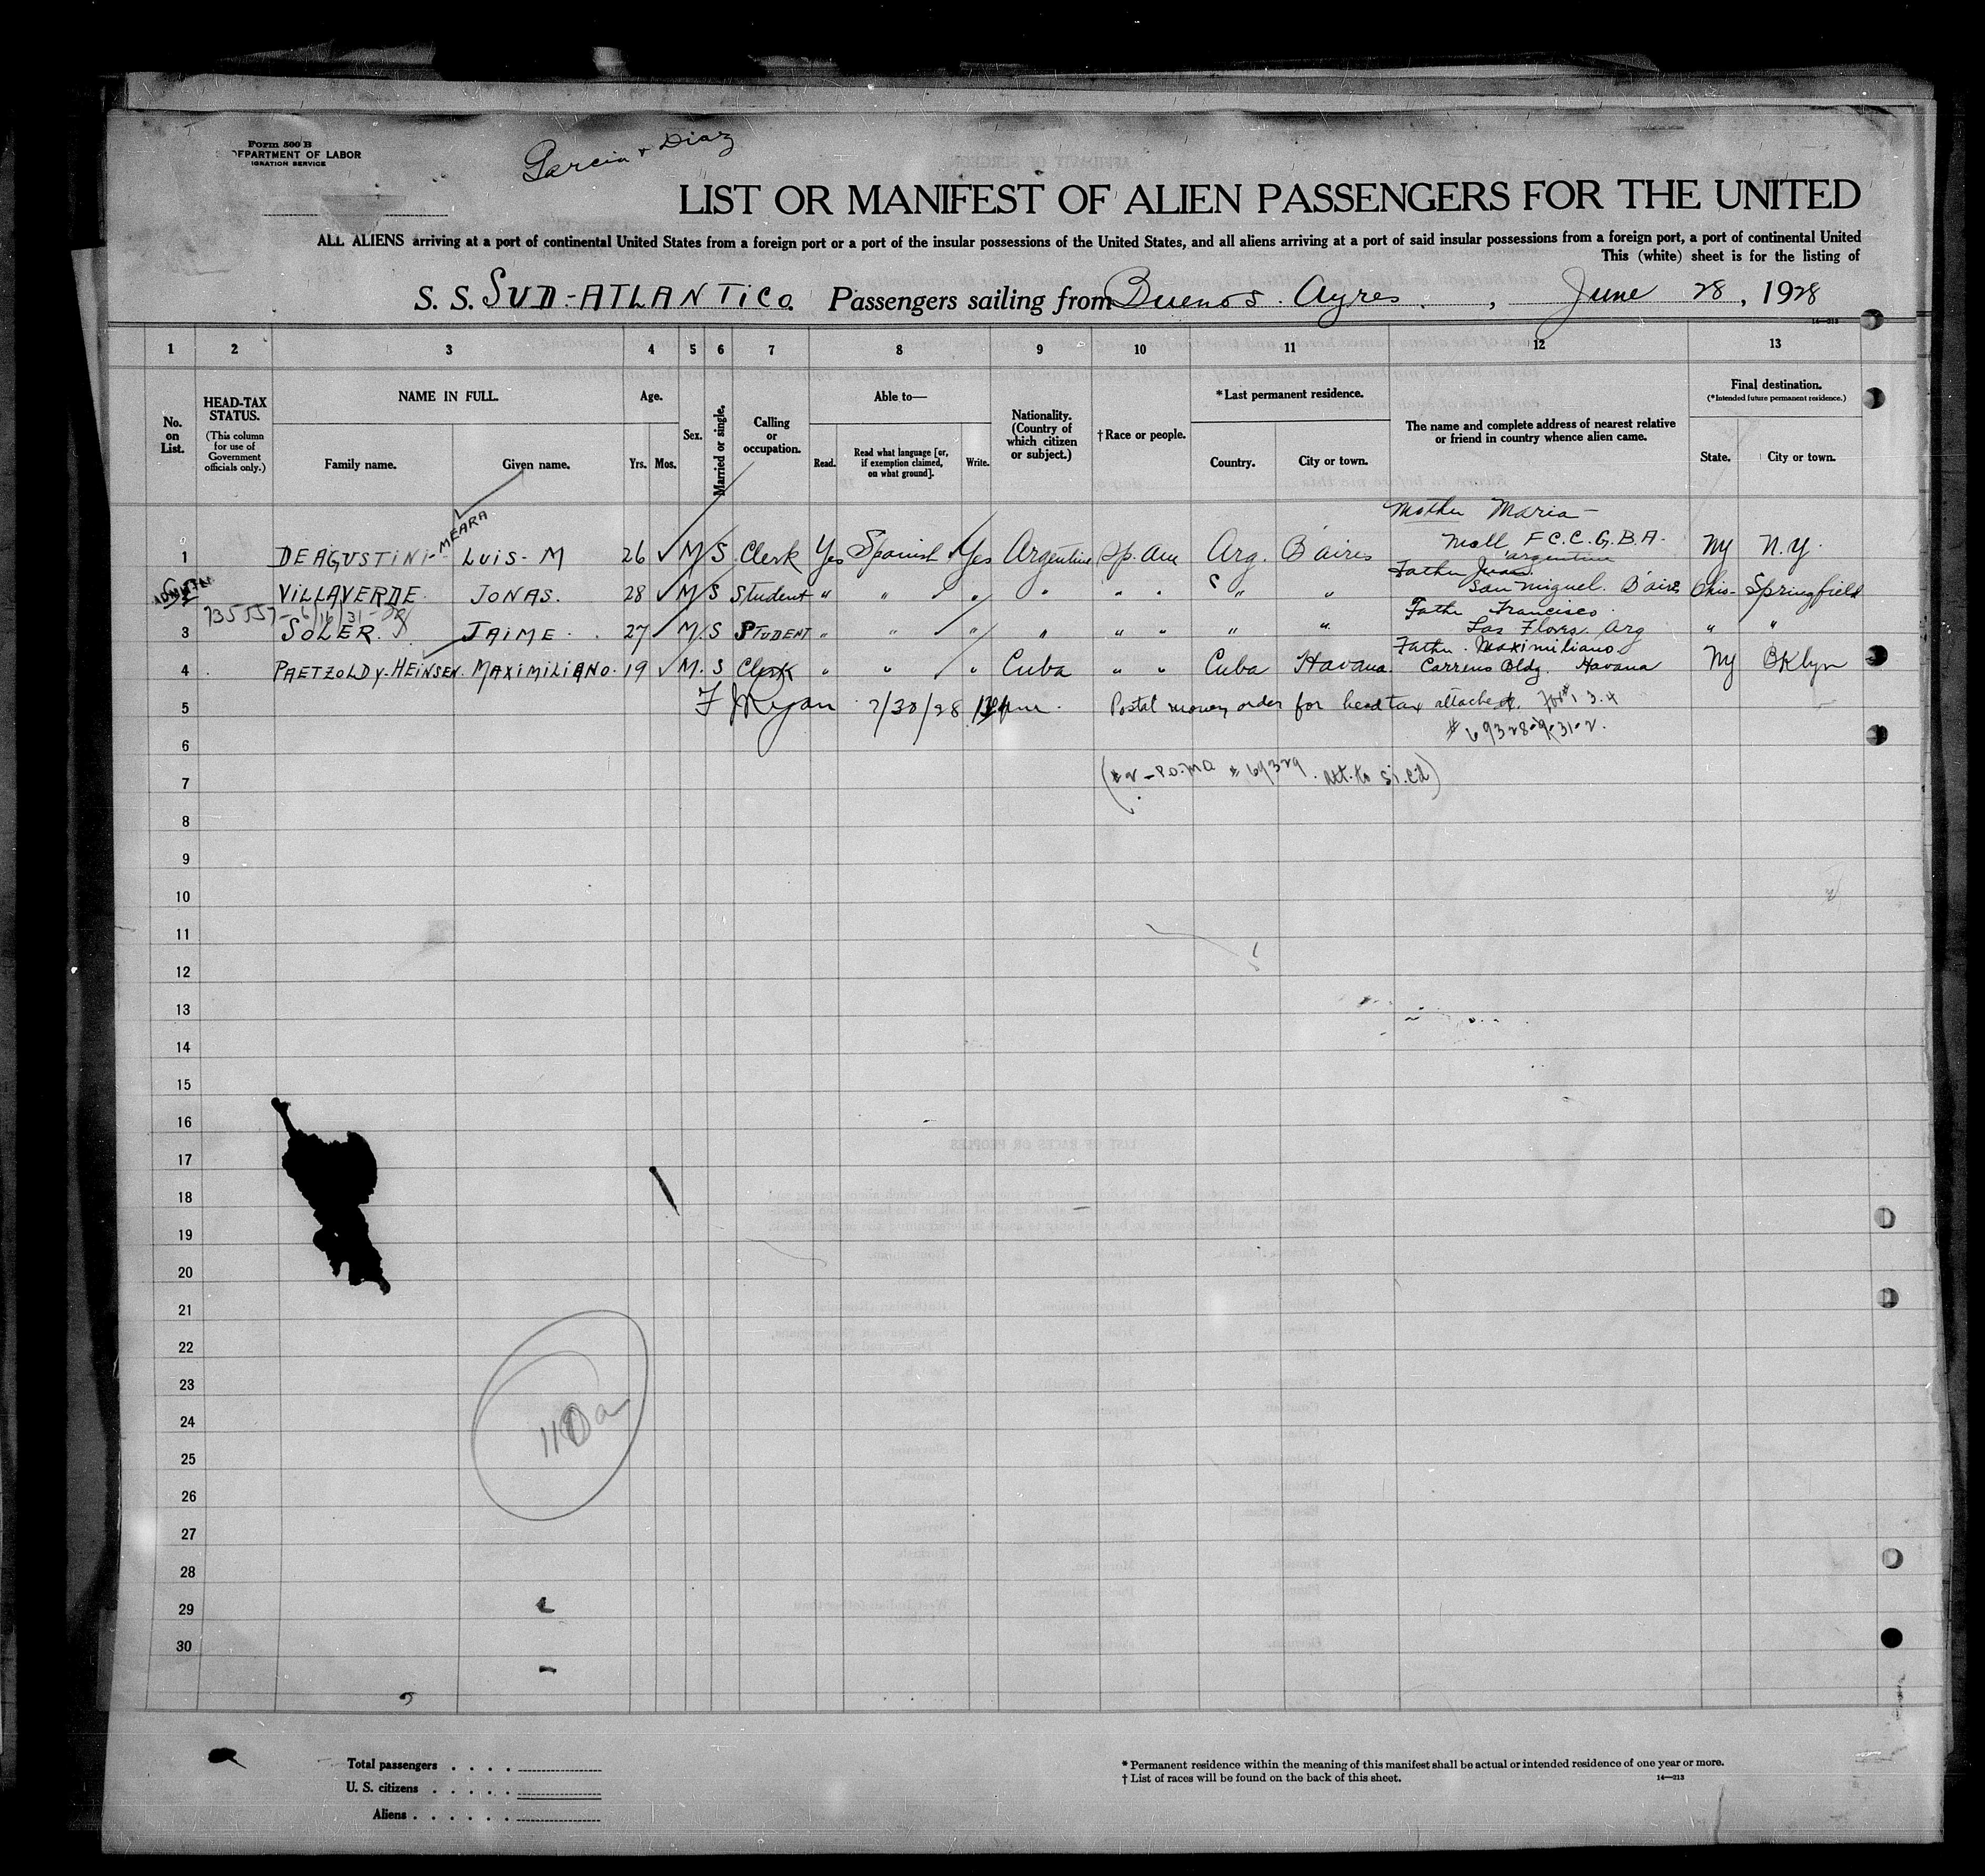 Form 500 B
DEPARTMENT OF LABOR
IGRATION SERVICE
Garcia & Diaz
LIST OR MANIFEST OF ALIEN PASSENGERS FOR THE UNITED
ALL ALIENS arriving at a port of continental United States from a foreign port or a port of the insular possessions of the United States, and all aliens arriving at a port of said insular possessions from a foreign port, a port of continental United
This (white) sheet is for the listing of
S. S. SUD-ATLANTICO. Passengers sailing from Buenos. Ayres, June 28, 1928
14—213
1 2 3 4 5 6 7 8 9 10 11 12 13
No. on List.
HEAD-TAX STATUS.
(This column for use of Government officials only.)
NAME IN FULL.
Family name. Given name.
Age.
Yrs. Mos.
Sex.
Married or single.
Calling or occupation.
Able to—
Read. Read what language [or, if exemption claimed, on what ground]. Write.
Nationality. (Country of which citizen or subject.)
†Race or people.
*Last permanent residence.
Country. City or town.
The name and complete address of nearest relative or friend in country whence alien came.
Final destination.
(*Intended future permanent residence.)
State. City or town.
Mother Maria —
1 DE AGUSTINI-MEARA LUIS-M 26 M S Clerk Yes Spanish Yes Argentine Sp. Am Arg. B aires Moll F.C.C.G.B.A. Argentine NY N.Y.
ADMITTED
Father Juan
VILLAVERDE JONAS. 28 M S Student " " " " " " " " San Miguel. B aires Ohio- Springfield
735557- 6/16/31-
Father Francisco
3 SOLER. JAIME. 27 M. S STUDENT " " " " " " " " Las Flores. Arg " "
Father. Maximiliano
4 PAETZOLD y-HEINSEN. MAXIMILIANO. 19 M. S Clerk " " " Cuba " " Cuba Havana Carreno Bldg. Havana NY BKlyn
5 F J Ryan 7/30/28 pm. Postal money order for head tax attached. For # 1 3.4
6 # 69328-9-31-2.
7 (#2-P.O.MO # 69329. att. to S.I. Cd)
8
9
10
11
12
13
14
15
16
17
18
19
20
21
22
23
24
25
26
27
28
29
30
Total passengers . . . .
U. S. citizens . . . . .
Aliens . . . . . .
* Permanent residence within the meaning of this manifest shall be actual or intended residence of one year or more.
† List of races will be found on the back of this sheet.
14—213